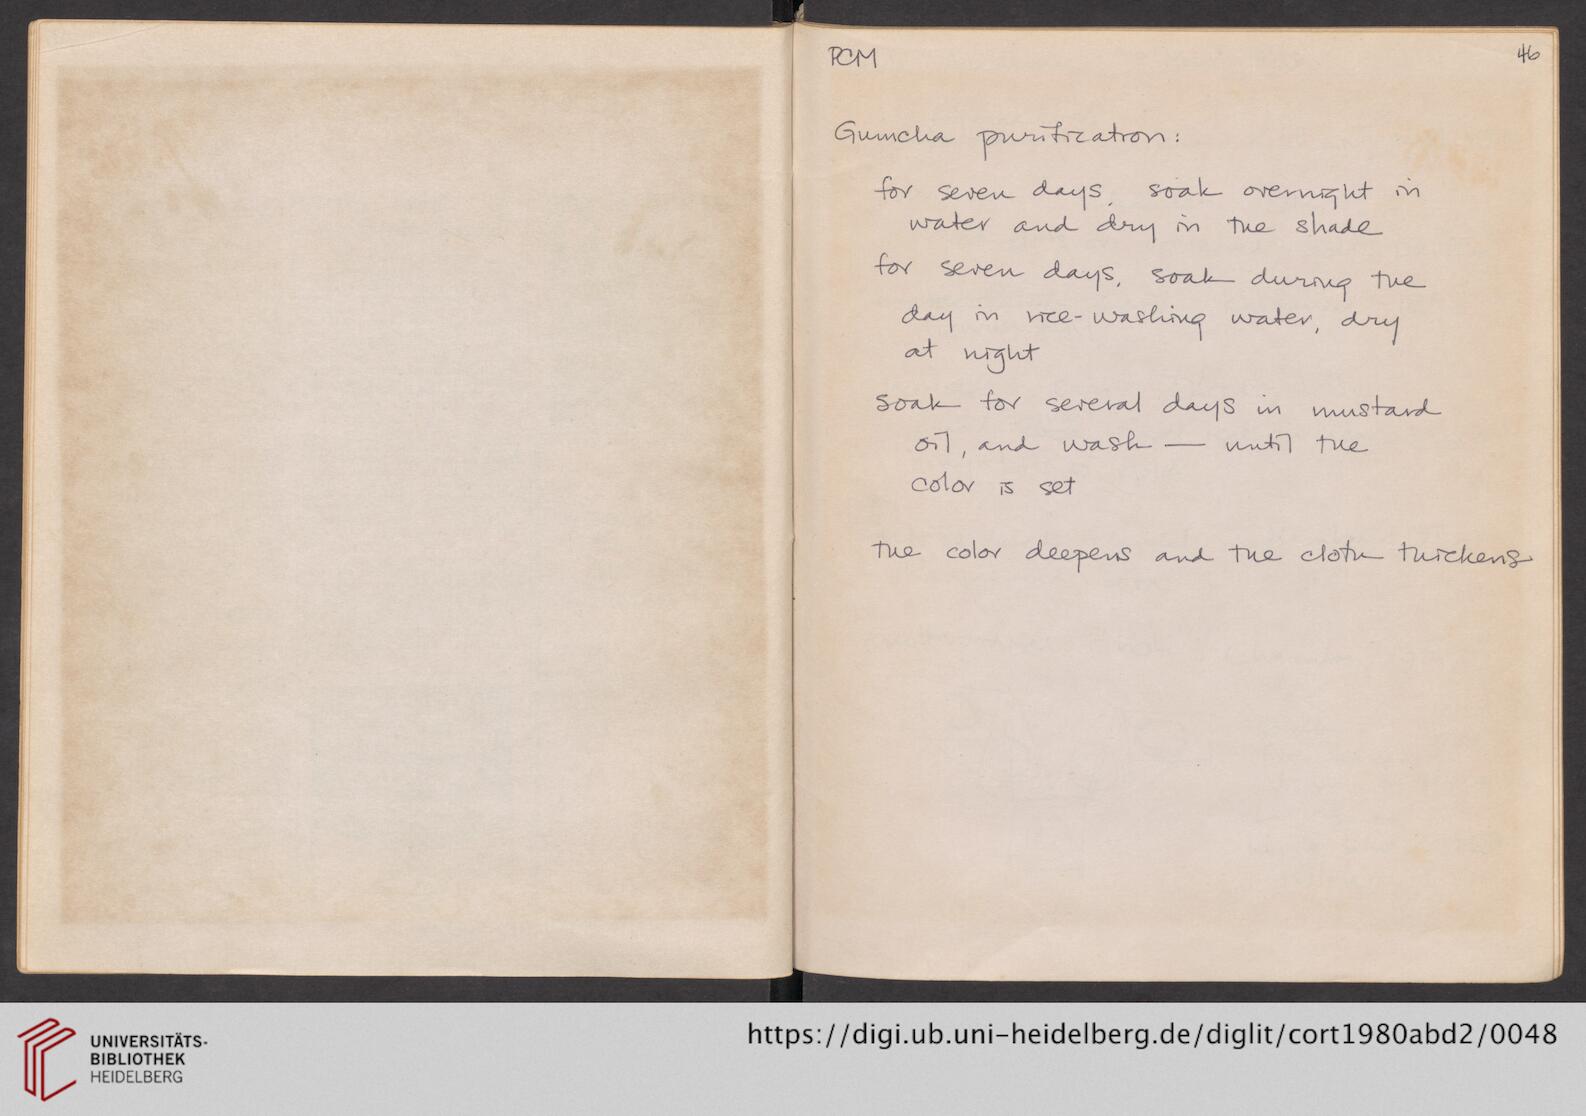 PCM
46
Gumcha purification:
for seven days, soak overnight in
water and dry in the shade
for seven days, soak during the
day in rice-washing water, dry
at night
soak for several days in mustard
oil, and wash — until the
color is set
the color deepens and the cloth thickens
UNIVERSITÄTS-
BIBLIOTHEK
HEIDELBERG
https://digi.ub.uni-heidelberg.de/diglit/cort1980abd2/0048